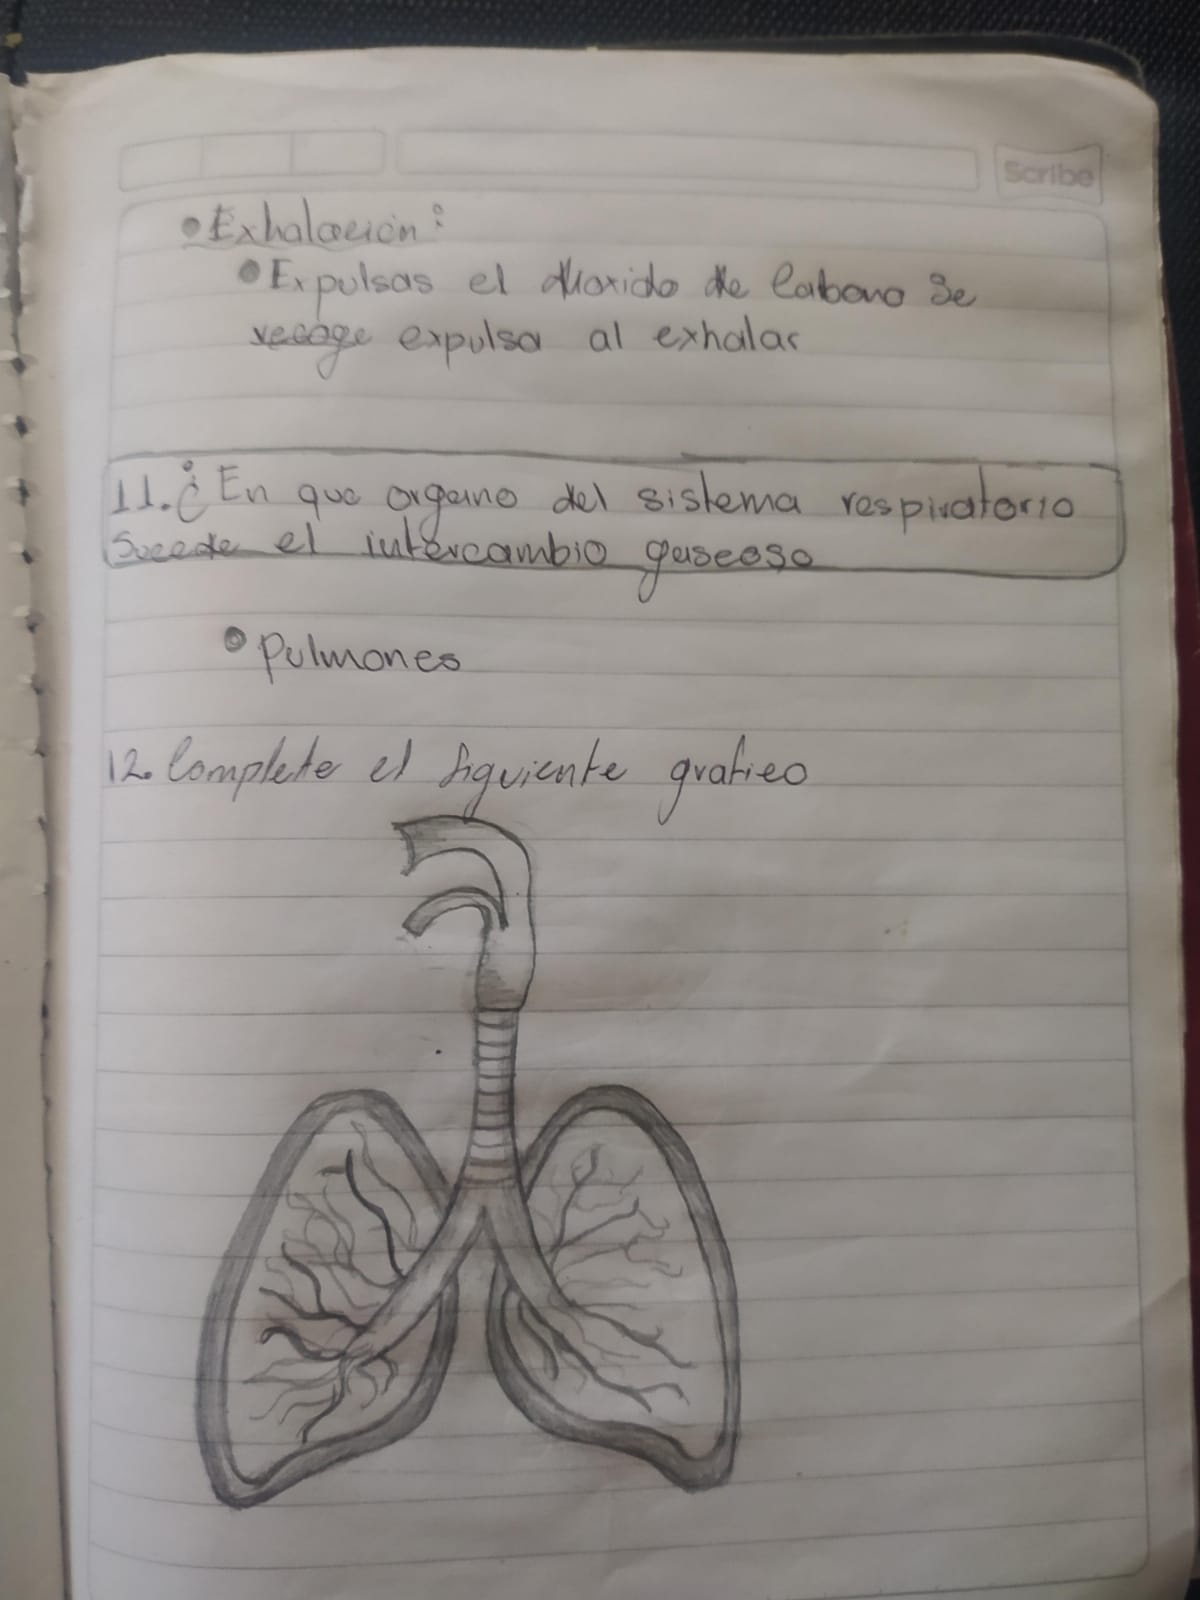 Scribe
• Exhalación:
• Expulsas el dioxido de Cabono Se
recoge expulsa al exhalar
11. ¿En que organo del sistema respiratorio
Sucede el intercambio gaseoso
• Pulmones
12. Complete el siguiente grafico